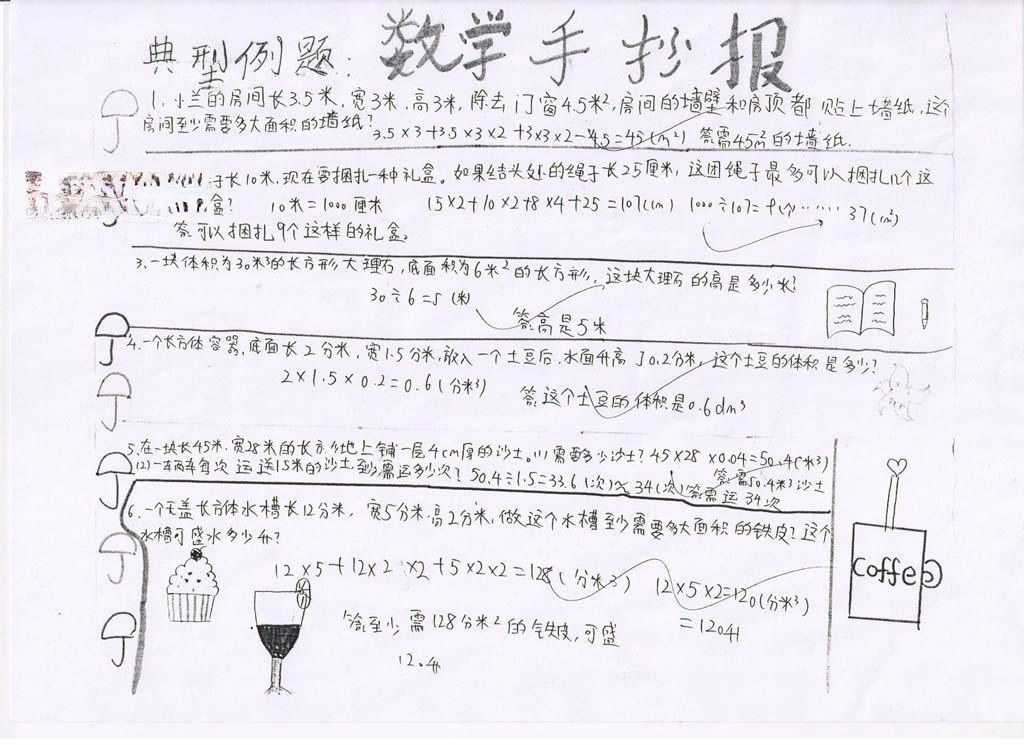 典型例题: 数学手抄报
1、小兰的房间长3.5米,宽3米,高3米,除去门窗4.5米²,房间的墙壁和房顶都贴上墙纸,这个
房间至少需要多大面积的墙纸?
3.5×3+3.5×3×2+3×3×2-4.5=45(m²) 答:需45m²的墙纸.
子长10米,现在要捆扎一种礼盒。如果结头处的绳子长25厘米,这团绳子最多可以捆扎几个这
盒? 10米=1000厘米 15×2+10×2+8×4+25=107(cm) 1000÷107=9(个)……37(cm²)
答:可以捆扎9个这样的礼盒。
3、一块体积为30米³的长方形大理石,底面积为6米²的长方形,这块大理石的高是多少米?
30÷6=5(米)
答:高是5米
4、一个长方体容器,底面长2分米,宽1.5分米,放入一个土豆后,水面升高了0.2分米,这个土豆的体积是多少?
2×1.5×0.2=0.6(分米³)
答:这个土豆的体积是0.6dm³
5、在一块长45米,宽28米的长方形地上铺一层4cm厚的沙土。(1)需要多少沙土? 45×28×0.04=50.4(米³)
答:需50.4米³沙土
(2)一车每次运送1.5米的沙土,至少需运多少次? 50.4÷1.5=33.6(次)≈34(次) 答:需运34次
6、一个无盖长方体水槽长12分米,宽5分米,高2分米,做这个水槽至少需要多大面积的铁皮?这个
水槽可盛水多少升?
12×5+12×2×2+5×2×2=128(分米³) 12×5×2=120(分米³)
=120升
答:至少需128分米²的铁皮,可盛
120升
Coffee